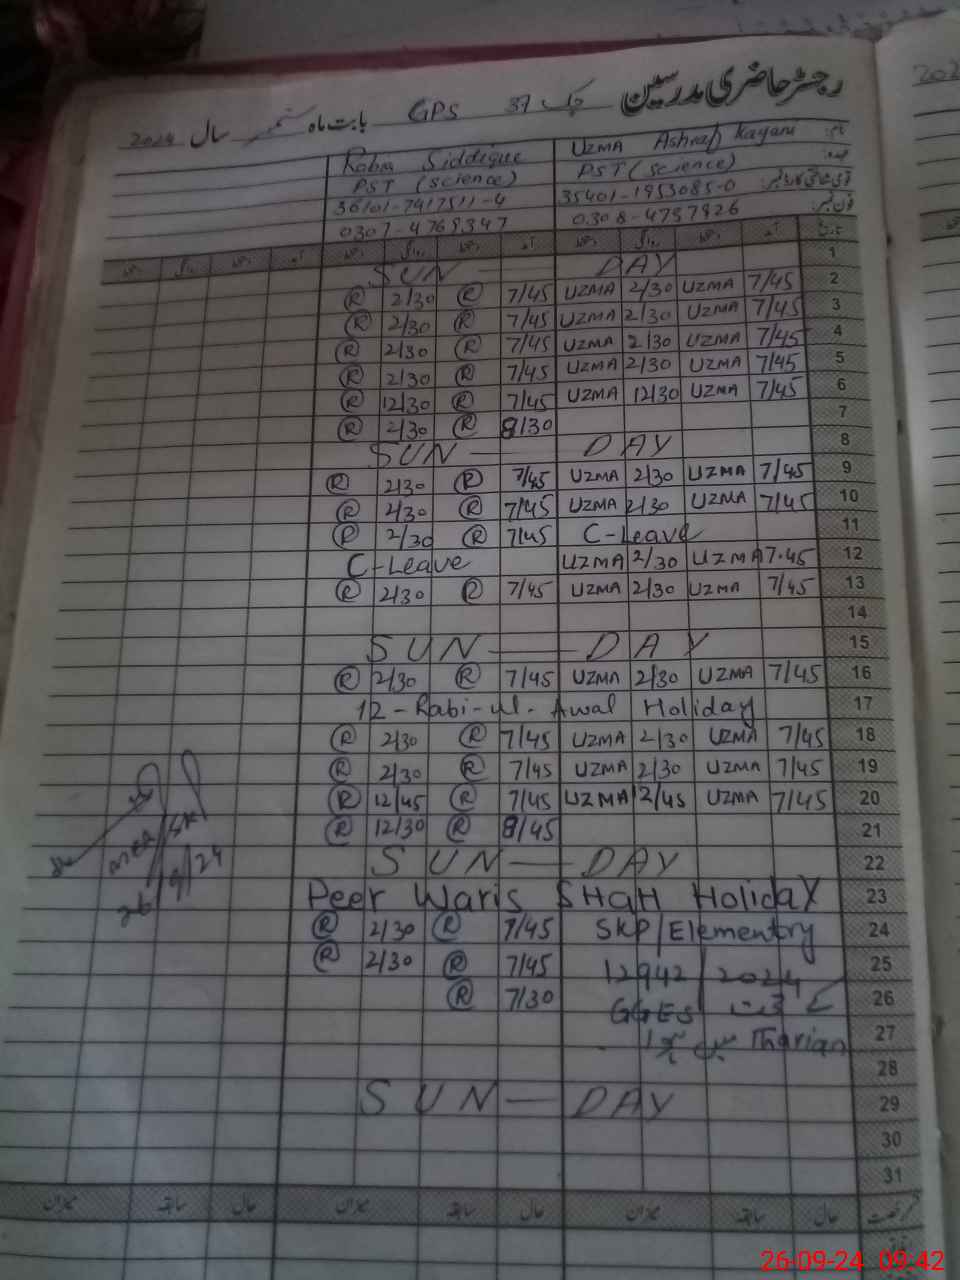 رجسٹر حاضری مدرسین
چک 37 GPS بابت ماہ ستمبر سال 2024
UZMA Ashraf Kayani Rabia Siddique
PST (Science) PST (Science)
35401-1953085-0 36101-7417511-4
0308-4757926 0307-4768347
1 SUN — DAY
2 7/45 UZMA 2/30 UZMA 7/45 R 2/30 R
3 7/45 UZMA 2/30 UZMA 7/45 R 2/30 R
4 7/45 UZMA 2/30 UZMA 7/45 R 2/30 R
5 7/45 UZMA 2/30 UZMA 7/45 R 2/30 R
6 7/45 UZMA 12/30 UZMA 7/45 R 12/30 R
7 8/30 R 2/30 R
8 SUN — DAY
9 7/45 UZMA 2/30 UZMA 7/45 R 2/30 R
10 7/45 UZMA 2/30 UZMA 7/45 R 2/30 R
11 C-Leave 7/45 R 2/30 R
12 7.45 UZMA 2/30 UZMA C-Leave
13 7/45 UZMA 2/30 UZMA 7/45 R 2/30 R
14
15 SUN — DAY
16 7/45 UZMA 2/30 UZMA 7/45 R 2/30 R
17 12-Rabi-ul-Awal Holiday
18 7/45 UZMA 2/30 UZMA 7/45 R 2/30 R
19 7/45 UZMA 2/30 UZMA 7/45 R 2/30 R
20 7/45 UZMA 12/45 UZMA 7/45 R 12/45 R
21 8/45 R 12/30 R
22 SUN — DAY
23 Peer Waris SHaH HolidaY
24 SKP/Elementry 7/45 R 2/30 R
25 12942/2024 7/45 R 2/30 R
26 GGES 7/30 R
27 Tharian میں
28
29 SUN — DAY
30
31
26/9/24
26-09-24 09:42